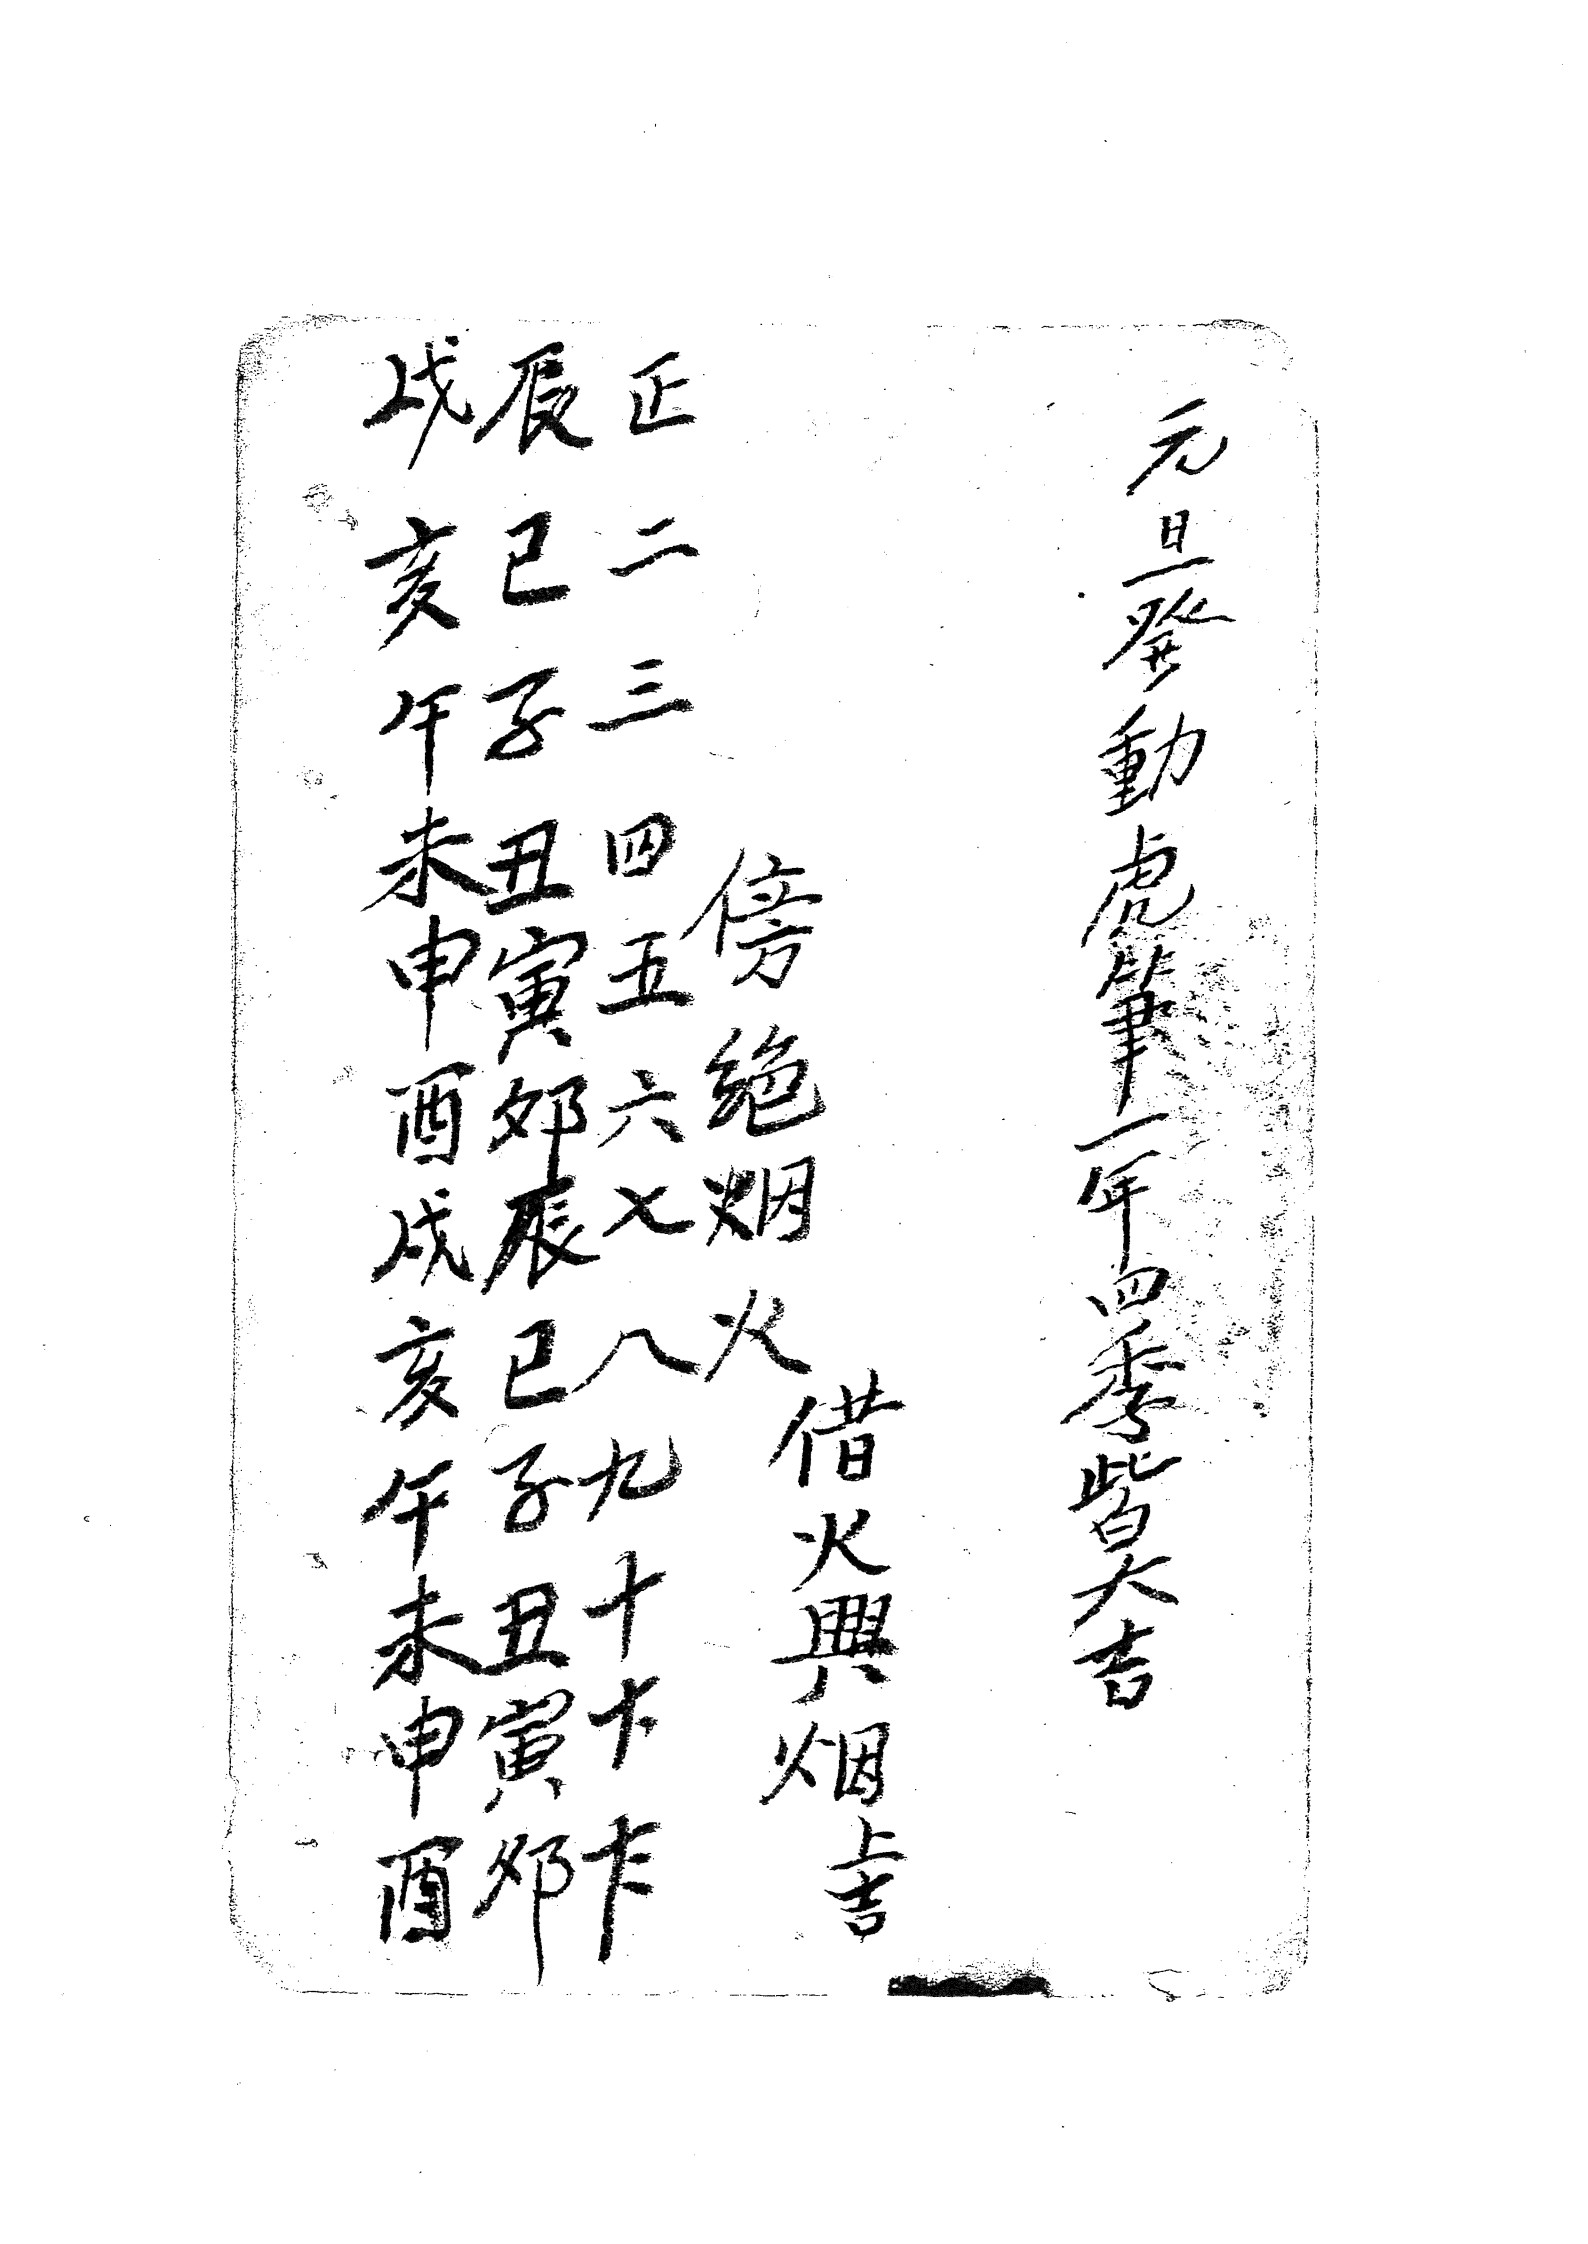 元旦發動虎筆一年四季皆大吉
借火興烟上吉
傍絶烟火
正二三四五六七八九十
辰巳子丑寅卯辰巳子丑寅卯
戌亥午未申酉戌亥午未申酉